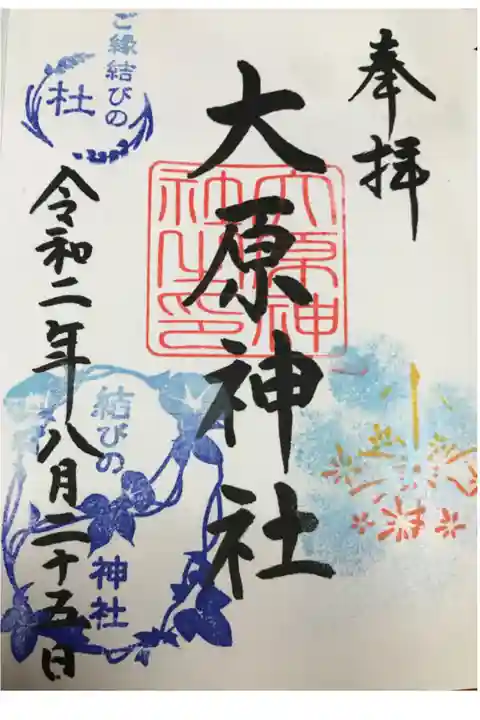 奉拝
大原神社
大原神社之印
ご縁結びの
杜
令和二年八月二十五日
結びの
神社